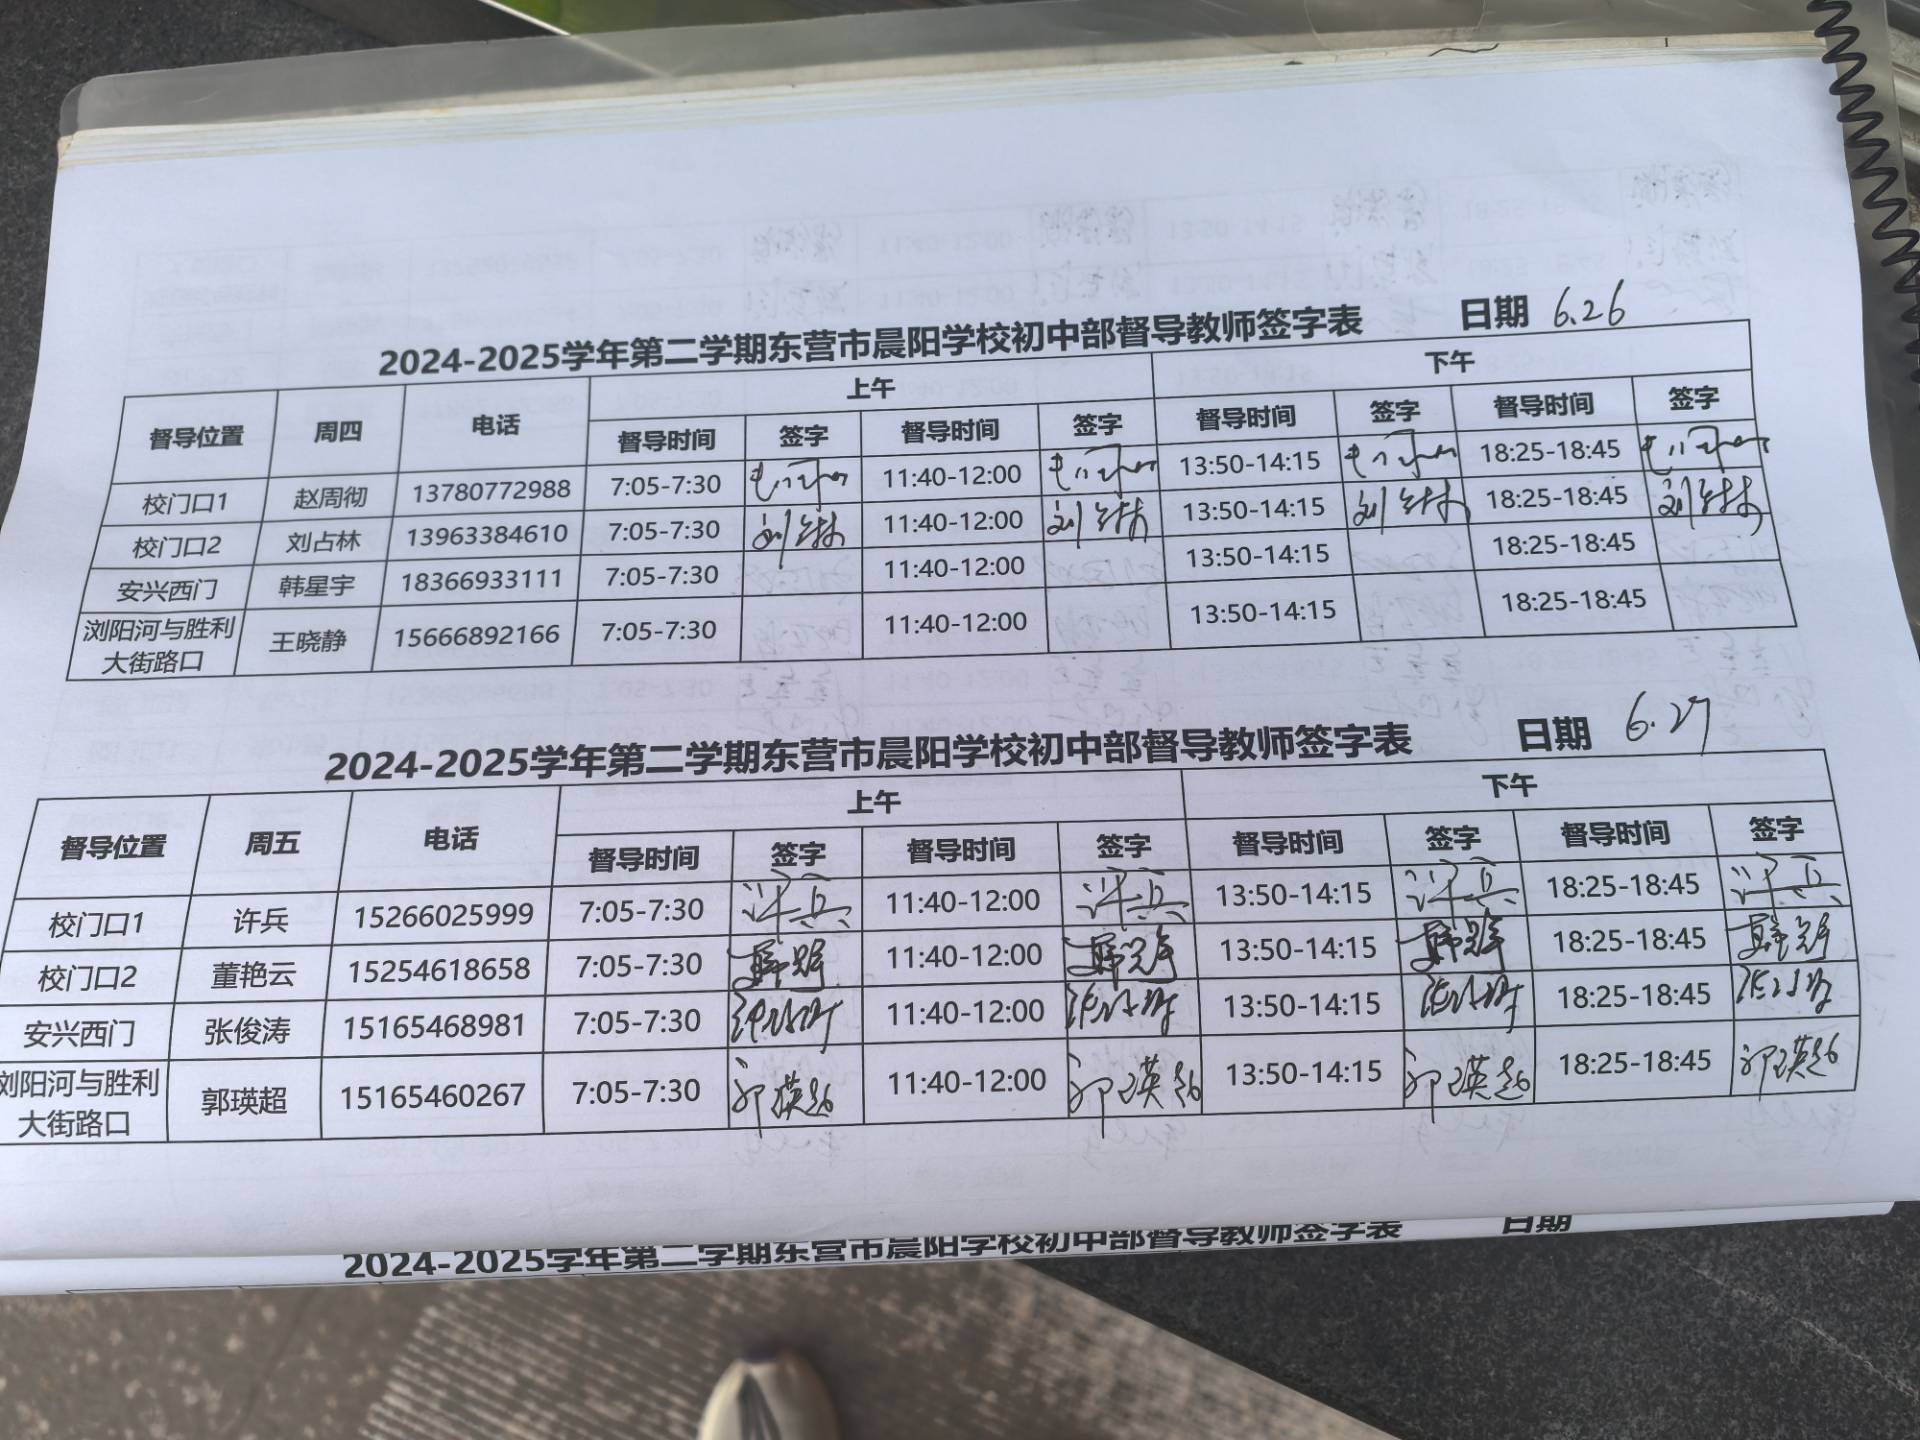 2024-2025学年第二学期东营市晨阳学校初中部督导教师签字表 日期 6.26
督导位置 周四 电话 上午 下午
督导时间 签字 督导时间 签字 督导时间 签字 督导时间 签字
校门口1 赵周彻 13780772988 7:05-7:30 11:40-12:00 13:50-14:15 18:25-18:45
校门口2 刘占林 13963384610 7:05-7:30 刘占林 11:40-12:00 刘占林 13:50-14:15 刘占林 18:25-18:45 刘占林
安兴西门 韩星宇 18366933111 7:05-7:30 11:40-12:00 13:50-14:15 18:25-18:45
浏阳河与胜利
大街路口 王晓静 15666892166 7:05-7:30 11:40-12:00 13:50-14:15 18:25-18:45
2024-2025学年第二学期东营市晨阳学校初中部督导教师签字表 日期 6.27
督导位置 周五 电话 上午 下午
督导时间 签字 督导时间 签字 督导时间 签字 督导时间 签字
校门口1 许兵 15266025999 7:05-7:30 许兵 11:40-12:00 许兵 13:50-14:15 许兵 18:25-18:45 许兵
校门口2 董艳云 15254618658 7:05-7:30 11:40-12:00 13:50-14:15 18:25-18:45
安兴西门 张俊涛 15165468981 7:05-7:30 11:40-12:00 13:50-14:15 18:25-18:45
浏阳河与胜利
大街路口 郭瑛超 15165460267 7:05-7:30 郭瑛超 11:40-12:00 郭瑛超 13:50-14:15 郭瑛超 18:25-18:45 郭瑛超
2024-2025学年第二学期东营市晨阳学校初中部督导教师签字表 日期